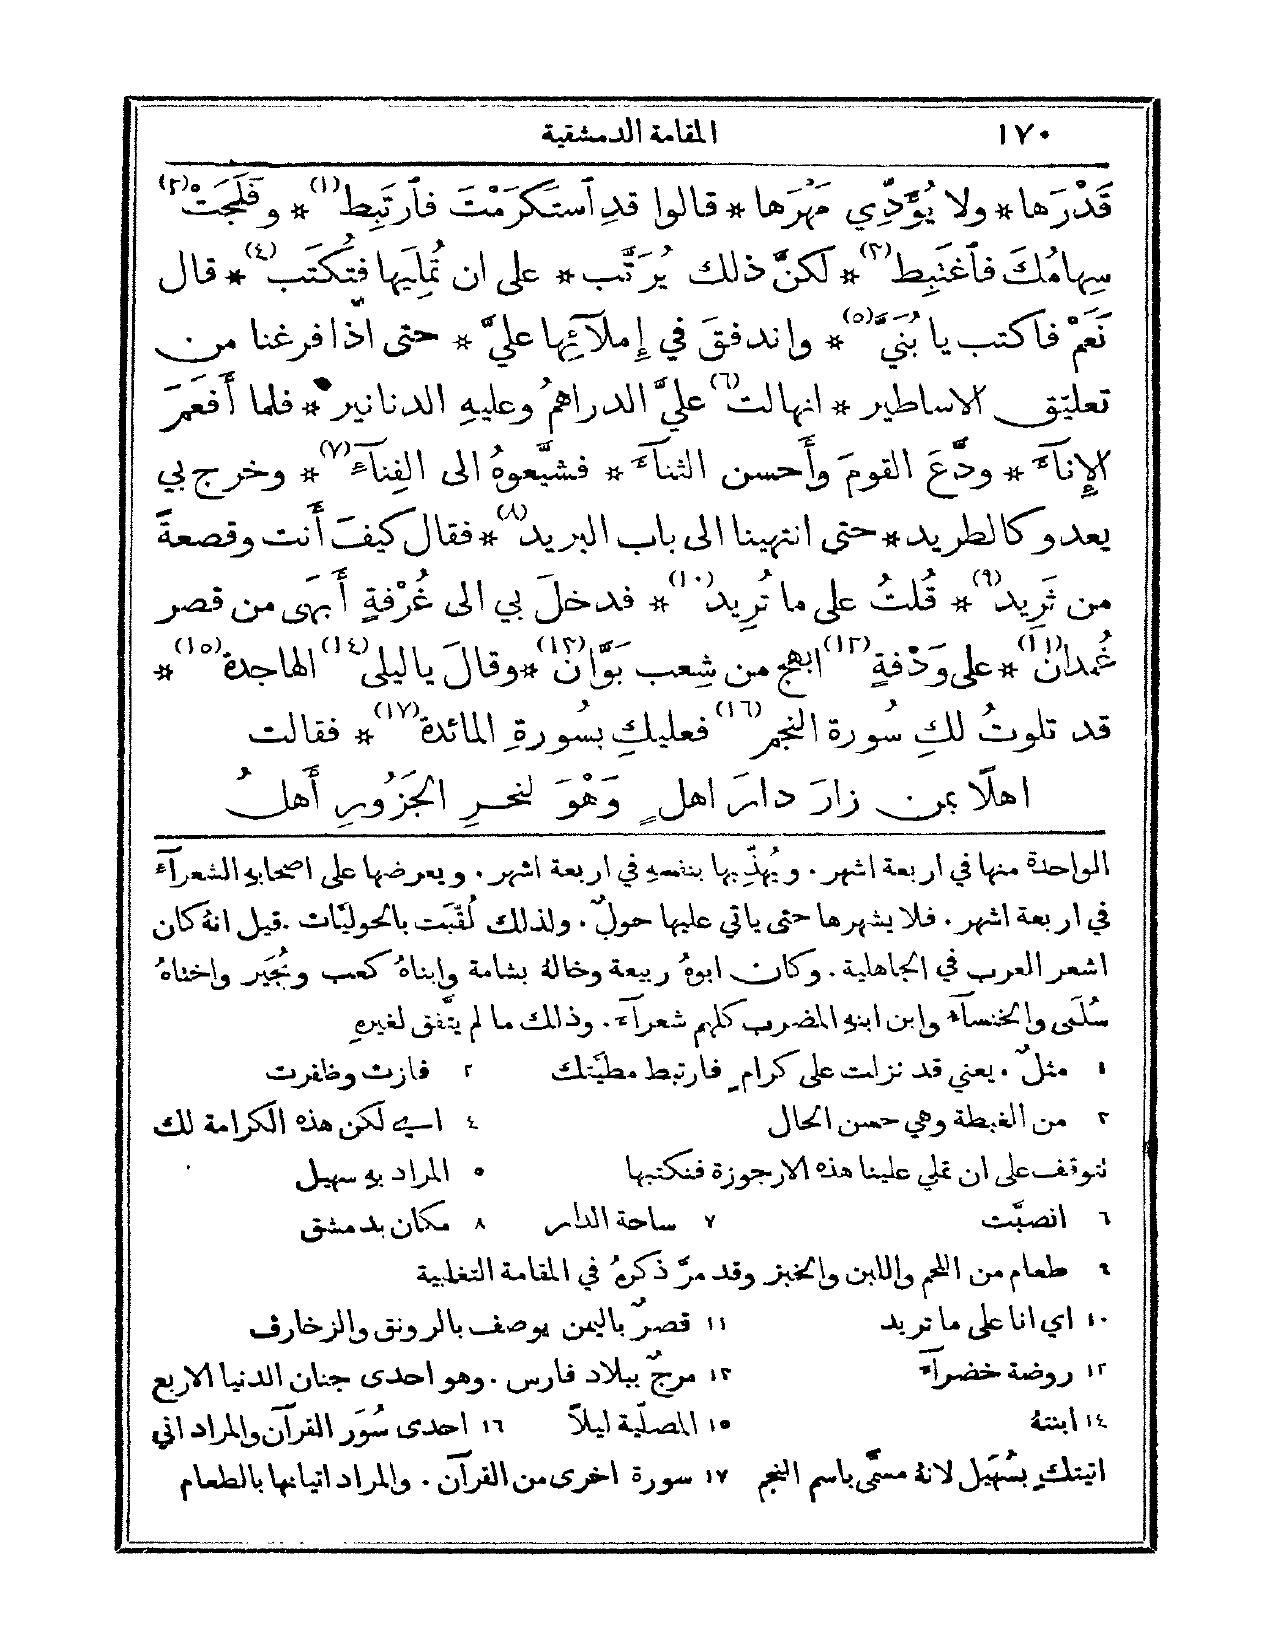 ١٧٠ المقامة الدمشقية
قَدْرَها * ولا يُؤَدِّي مَهْرَها * قالوا قدِ ٱستَكرَمْتَ فٱرتَبِط(١) * وفَلَجَتْ(٢)
سِهامُكَ فٱغتَبِط(٣) * لكنَّ ذلك يُرَتَّب * على ان تُملِيَها فتُكتَب(٤) * قال
نَعَمْ فاكتب يا بُنَيَّ(٥) * واندفقَ في إِملآئِها عليَّ * حتى اذا فرغنا من
تعليق الاساطير * انهالت(٦) عليَّ الدراهمُ وعليهِ الدنانير * فلما أَفعَمَ
الإِنآءَ * ودَّعَ القومَ وأَحسن الثنآءَ * فشيَّعوهُ الى الفِنآءِ(٧) * وخرج بي
يعدو كالطريد * حتى انتهينا الى باب البريد(٨) * فقال كيفَ أَنت وقصعةً
من ثَرِيد(٩) * قُلتُ على ما تُرِيد(١٠) * فدخلَ بي الى غُرْفةٍ أَبهَى من قصر
غُمدانَ(١١) * على وَدْفةٍ(١٢) ابهج من شِعب بَوَّانَ(١٣) * وقالَ يا ليلى(١٤) الهاجدة(١٥) *
قد تلوتُ لكِ سُورة النجم(١٦) فعليكِ بسُورةِ المائدة(١٧) * فقالت
اهلًا بمن زارَ دارَ اهلٍ وَهْوَ لنحرِ الجَزُورِ أَهلُ
الواحدة منها في اربعة اشهر. ويُهذِّبها بنفسهِ في اربعة اشهر. ويعرضها على اصحابهِ الشعرآءِ
في اربعة اشهر. فلا يشهرها حتى ياتي عليها حولٌ. ولذلك لُقِّبَت بالحوليَّات. قيل انهُ كان
اشعر العرب في الجاهلية. وكان ابوهُ ربيعة وخالهُ بشامة وابناهُ كعب وبُجَير واختاهُ
سُلمَى والخنسآءُ وابن ابنهِ المضرب كلهم شعرآءَ. وذلك ما لم يتَّفق لغيرهِ
١ مثلٌ. يعني قد نزلت على كرامٍ فارتبط مطيَّتك ٢ فازت وظفرت
٣ من الغبطة وهي حسن الحال ٤ اي لكن هذه الكرامة لك
تتوقف على ان تملي علينا هذه الارجوزة فنكتبها ٥ المراد بهِ سهيل
٦ انصبَّت ٧ ساحة الدار ٨ مكان بدمشق
٩ طعام من اللحم واللبن والخبز وقد مرَّ ذكرهُ في المقامة التغلبية
١٠ اي انا على ما تريد ١١ قصرٌ باليمن يوصف بالرونق والزخارف
١٢ روضة خضرآءَ ١٣ مرجٌ ببلاد فارس. وهو احدى جنان الدنيا الاربع
١٤ ابنتهُ ١٥ المصلّية ليلاً ١٦ احدى سُوَر القرآن والمراد اني
اتيتكِ بسُهَيل لانهُ مسمَّى باسم النجم ١٧ سورة اخرى من القرآن. والمراد اتيانها بالطعام